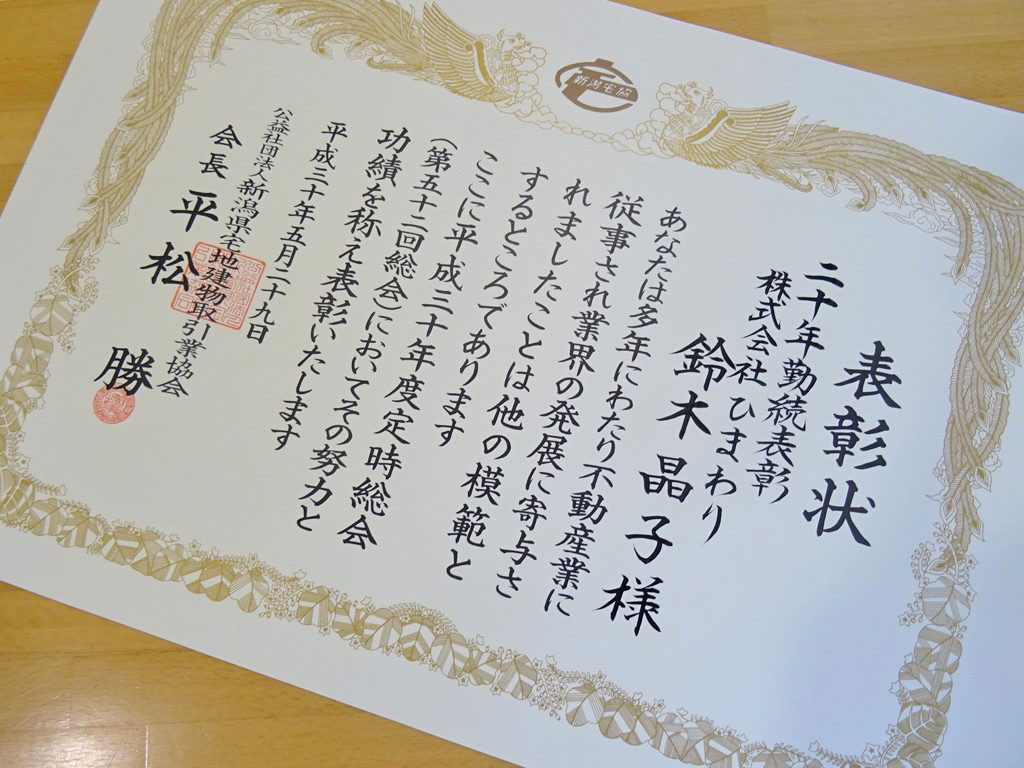 新潟宅協
表彰状
二十年勤続表彰
株式会社ひまわり
鈴木晶子様
あなたは多年にわたり不動産業に
従事され業界の発展に寄与さ
れましたことは他の模範と
するところであります
ここに平成三十年度定時総会
(第五十二回総会)においてその努力と
功績を称え表彰いたします
平成三十年五月二十九日
公益社団法人新潟県宅地建物取引業協会
会長平松勝